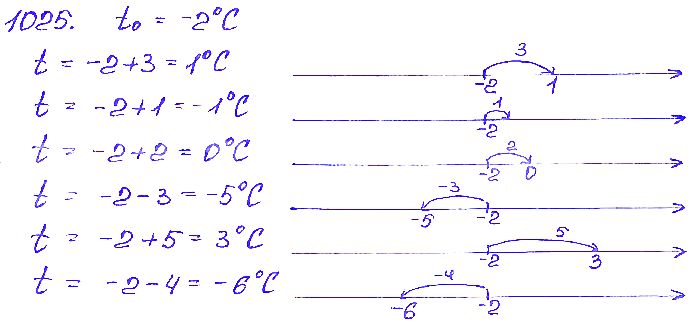 1025. t₀ = -2°C
t = -2+3 = 1°C 3 -2 1
t = -2+1 = -1°C 1 -2
t = -2+2 = 0°C 2 -2 0
t = -2-3 = -5°C -3 -5 -2
t = -2+5 = 3°C 5 -2 3
t = -2-4 = -6°C -4 -6 -2